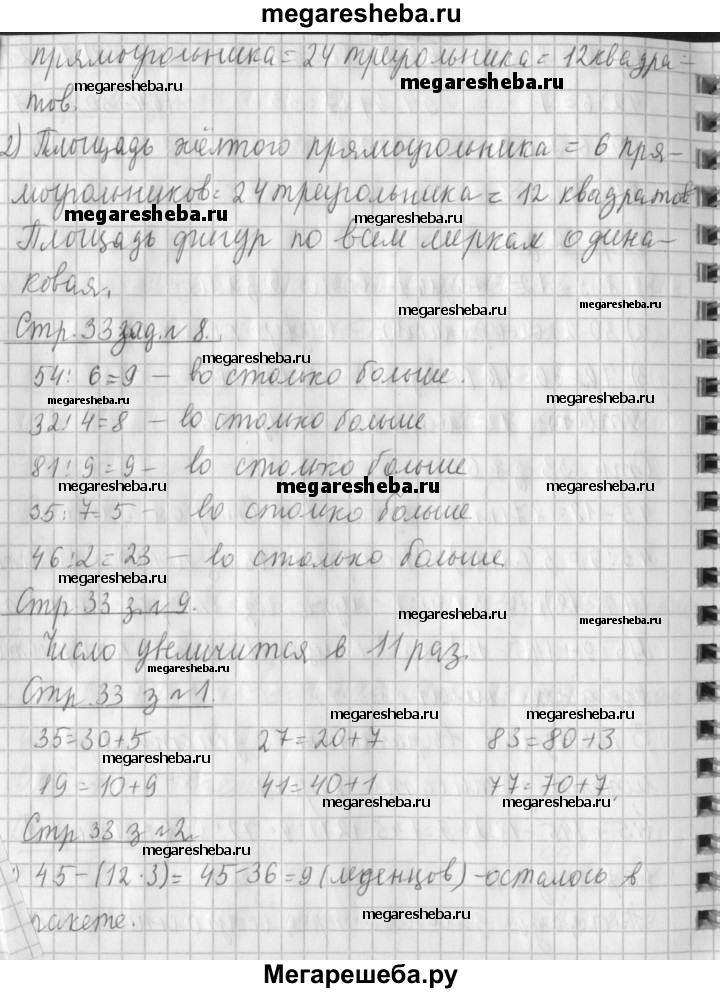 megaresheba.ru
прямоугольника = 24 треугольника = 12 квадра-
megaresheba.ru megaresheba.ru
тов.
2) Площадь жёлтого прямоугольника = 6 пря-
моугольников = 24 треугольника = 12 квадратов
megaresheba.ru megaresheba.ru
Площадь фигур по всем меркам одина-
ковая.
megaresheba.ru
Стр. 33 зад. №8.
megaresheba.ru
54 : 6 = 9 – во столько больше.
megaresheba.ru megaresheba.ru
32 : 4 = 8 – во столько больше
81 : 9 = 9 – во столько больше
megaresheba.ru megaresheba.ru megaresheba.ru
35 : 7 = 5 – во столько больше
46 : 2 = 23 – во столько больше
megaresheba.ru
Стр 33 з №9.
megaresheba.ru
Число увеличится в 11 раз.
megaresheba.ru
Стр. 33 з №1.
megaresheba.ru megaresheba.ru
35 = 30 + 5 27 = 20 + 7 83 = 80 + 3
megaresheba.ru
19 = 10 + 9 41 = 40 + 1 77 = 70 + 7
megaresheba.ru megaresheba.ru
Стр 33 з №2
megaresheba.ru
) 45 – (12 · 3) = 45 – 36 = 9 (леденцов) – осталось в
megaresheba.ru
пакете.
Мегарешеба.ру